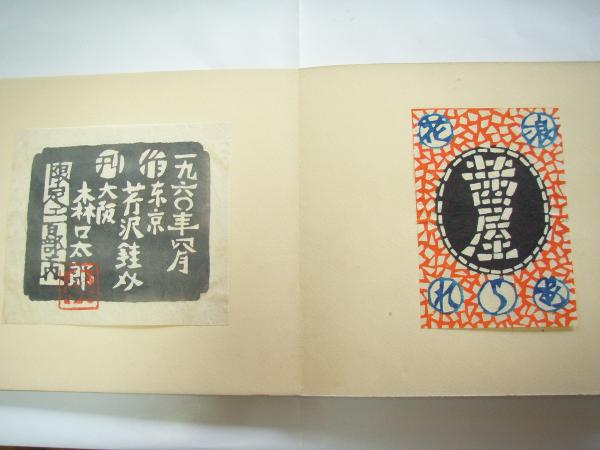 一九六〇年四月
作 东京
芹沢銈介
刊 大阪
森口太郎
限定二百部之内
浪花
茜屋
れ ら